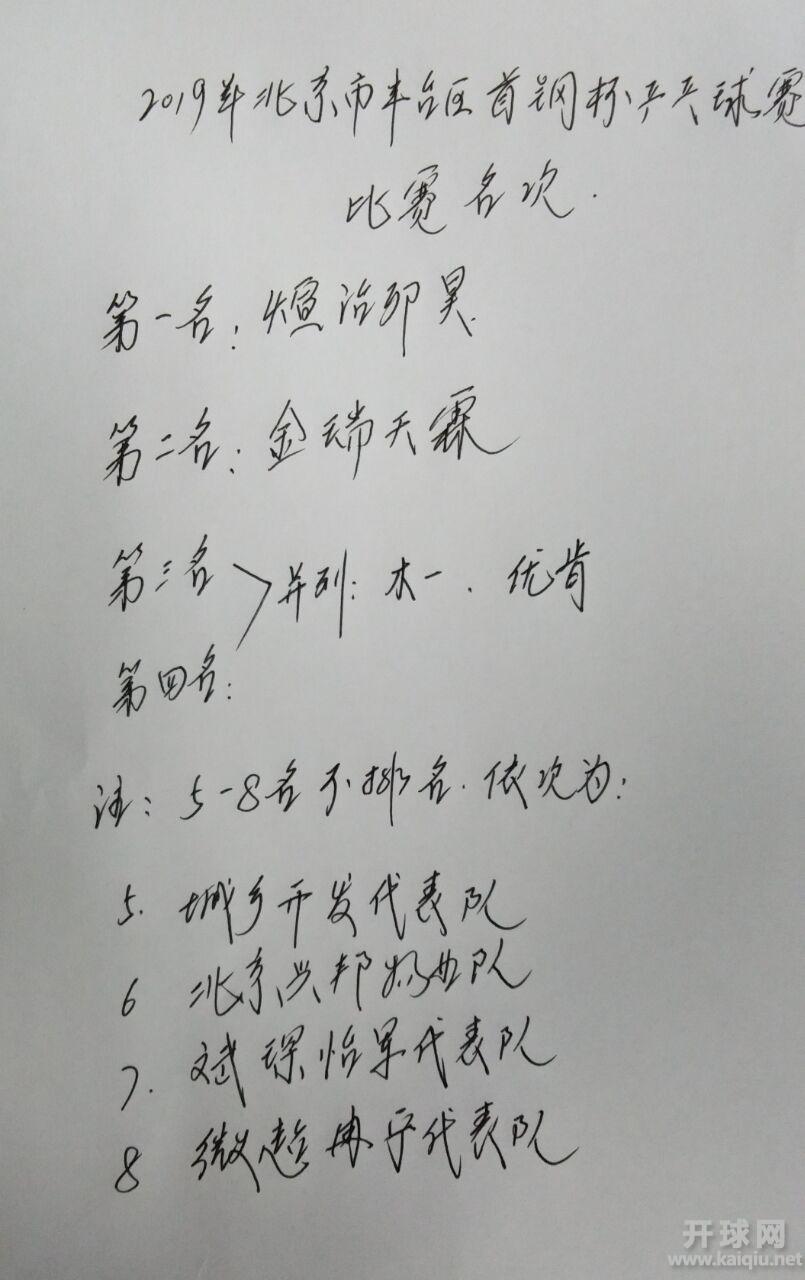 2019年北京市丰台区首钢杯乒乓球赛
比赛名次.
第一名: 煊冶昂昊.
第二名: 金瑞天霖
第三名 并列: 木一. 优肯
第四名:
注: 5-8名不排名. 依次为:
5. 城乡开发代表队
6 北京兴邦物业队
7. 斌琛怡军代表队
8 微超冉宁代表队
开球网
www.kaiqiu.net